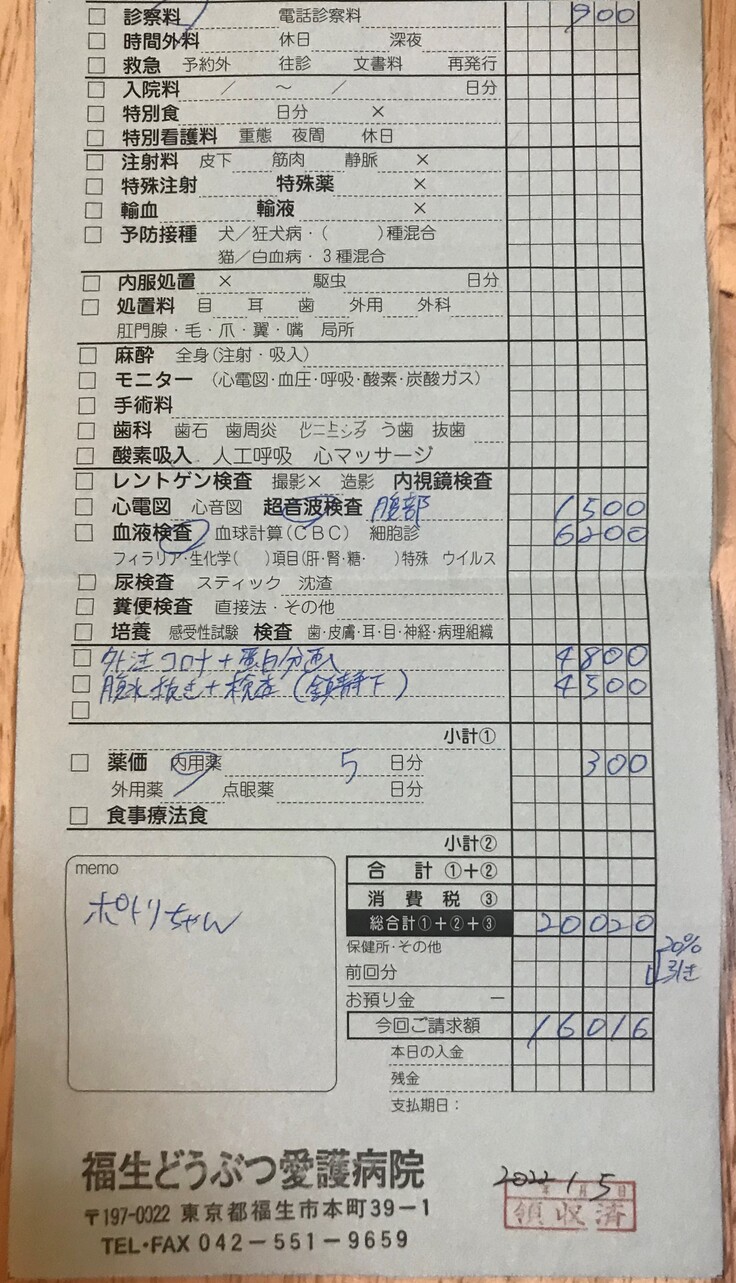 □ 診察料 電話診察料 900
□ 時間外料 休日 深夜
□ 救急 予約外 往診 文書料 再発行
□ 入院料 / ～ / 日分
□ 特別食 日分 ×
□ 特別看護料 重態 夜間 休日
□ 注射料 皮下 筋肉 静脈 ×
□ 特殊注射 特殊薬 ×
□ 輸血 輸液 ×
□ 予防接種 犬／狂犬病・( )種混合
猫／白血病・3種混合
□ 内服処置 × 駆虫 日分
□ 処置料 目 耳 歯 外用 外科
肛門腺・毛・爪・翼・嘴 局所
□ 麻酔 全身(注射・吸入)
□ モニター (心電図・血圧・呼吸・酸素・炭酸ガス)
□ 手術料
□ 歯科 歯石 歯周炎 う歯 抜歯
□ 酸素吸入 人工呼吸 心マッサージ
□ レントゲン検査 撮影× 造影 内視鏡検査
□ 心電図 心音図 超音波検査 腹部 1500
□ 血液検査 血球計算(CBC) 細胞診 6200
フィラリア・生化学( )項目(肝・腎・糖・ )特殊 ウイルス
□ 尿検査 スティック 沈渣
□ 糞便検査 直接法・その他
□ 培養 感受性試験 検査 歯・皮膚・耳・目・神経・病理組織
□ 外注 コロナ+蛋白分画 4800
□ 腹水抜き+検査(鎮静下) 4500
□
小計①
□ 薬価 内用薬 5 日分 300
外用薬 点眼薬 日分
□ 食事療法食
小計②
memo
ポトリちゃん
合計 ①＋②
消費税 ③
総合計①＋②＋③ 20020
保健所・その他
20%引き
前回分
お預り金 －
今回ご請求額 16016
本日の入金
残金
支払期日：
福生どうぶつ愛護病院
〒197-0022 東京都福生市本町39－1
TEL・FAX 042－551－9659
2022年1月5日
領収済